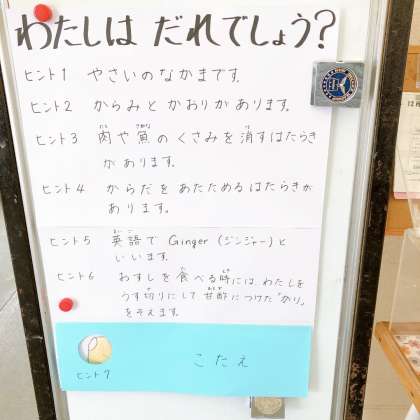 わたしは だれでしょう?
ヒント1 やさいのなかまです。
ヒント2 からみとかおりがあります。
ヒント3 肉や魚のくさみを消すはたらき
があります。
ヒント4 からだをあたためるはたらきが
あります。
ヒント5 英語で Ginger (ジンジャー)と
いいます。
ヒント6 おすしを食べる時には、わたしを
うす切りにして甘酢につけた「がり」
をそえます。
ヒント7 こたえ